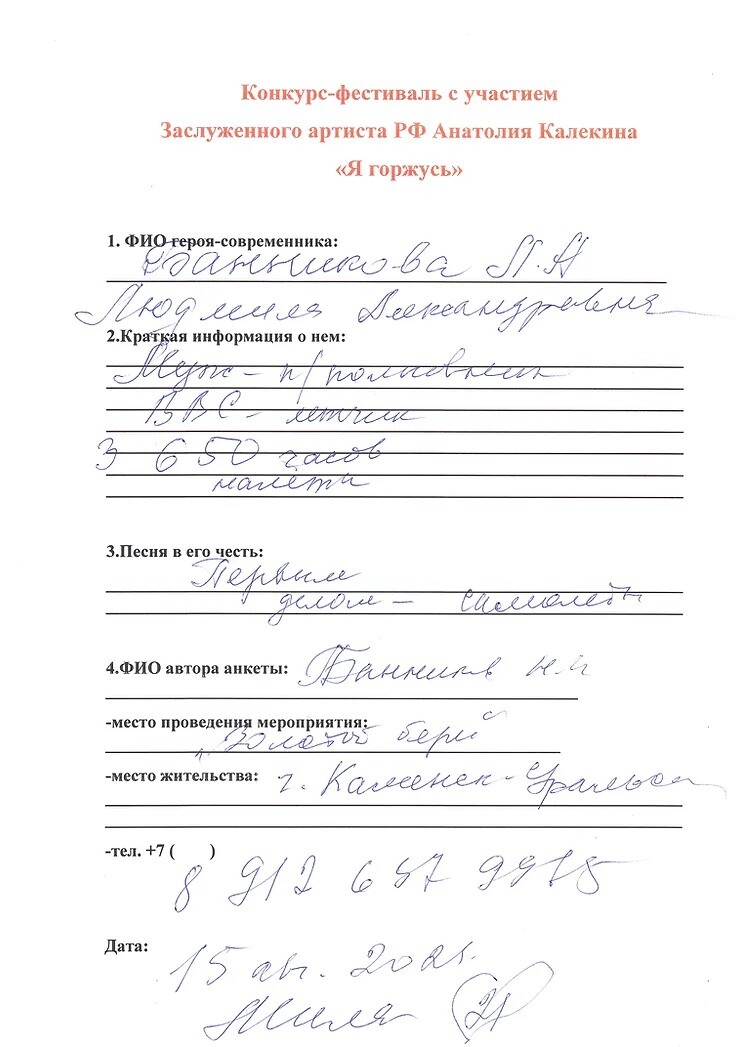 Конкурс-фестиваль с участием
Заслуженного артиста РФ Анатолия Калекина
«Я горжусь»
1. ФИО героя-современника:
Банникова Л.А
Людмила Александровна
2.Краткая информация о нем:
Муж - п/полковник
ВВС - летчик
3 650 часов
налёта
3.Песня в его честь:
Первым
делом - самолеты
4.ФИО автора анкеты: Банников Н.И
-место проведения мероприятия:
"Золотой берег"
-место жительства: г. Каменск-Уральск
-тел. +7 ( )
8 912 657 9975
Дата:
15 авг.